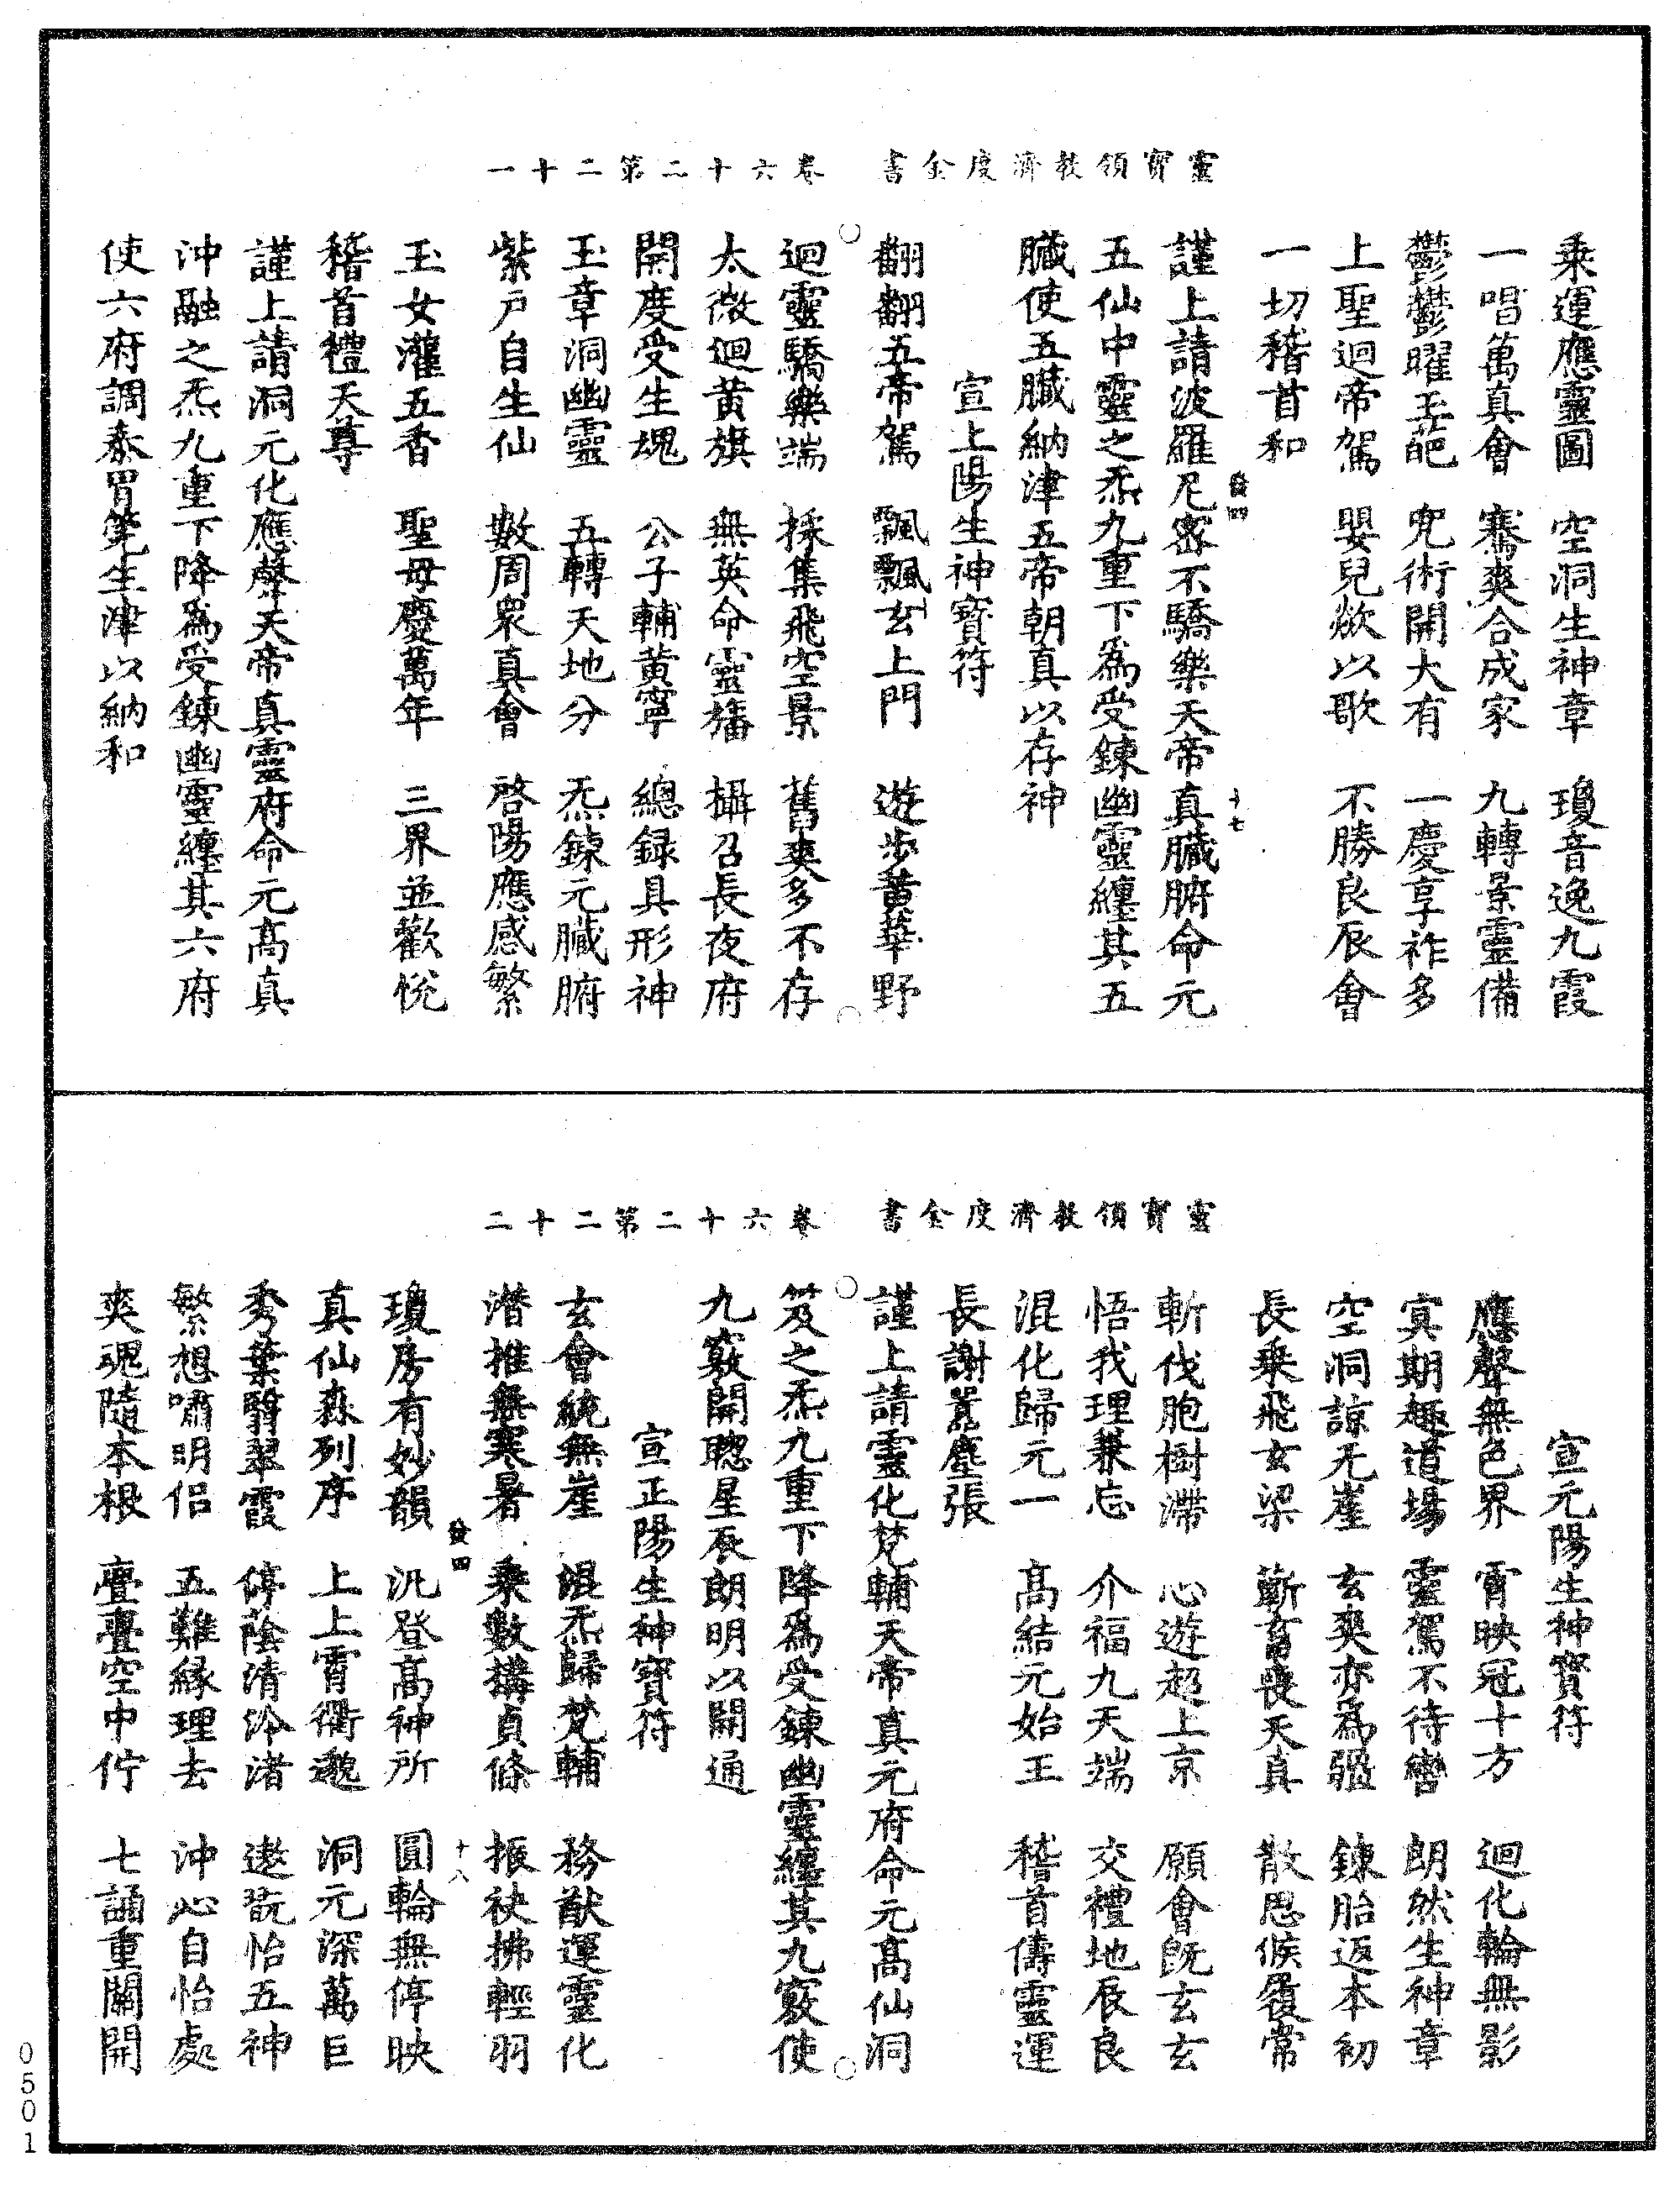 靈寶領教濟度金書　卷六十二第二十一
乘運應靈圖　空洞生神章　瓊音逸九霞
一唱萬真會　騫爽合成家　九轉景靈備
鬱鬱曜玉葩　兜術開大有　一慶享祚多
上聖迴帝駕　嬰兒歘以歌　不勝良辰會
一切稽首和
發四　十七
謹上請波羅尼密不驕樂天帝真臟腑命元
五仙中靈之炁九重下為受鍊幽靈纏其五
臟使五臟納津五帝朝真以存神
宣上陽生神寶符
翻翻五帝駕　飄飄玄上門　遊步黃華野
迴靈驕樂端　採集飛空景　舊爽多不存
太微迴黃旗　無英命靈旛　攝召長夜府
開度受生魂　公子輔黃寧　總録具形神
玉章洞幽靈　五轉天地分　炁鍊元臟腑
紫戶自生仙　數周衆真會　啓陽應感繁
玉女灌五香　聖母慶萬年　三界並歡悅
稽首禮天尊
謹上請洞元化應聲天帝真靈府命元高真
沖融之炁九重下降為受鍊幽靈纏其六府
使六府調泰胃筦生津以納和
靈寶領教濟度金書　卷六十二第二十二
宣元陽生神寶符
應聲無色界　霄映冠十方　迴化輪無影
㝠期趣道場　靈駕不待轡　朗然生神章
空洞諒无崖　玄爽亦為彊　鍊胎返本初
長乘飛玄梁　蘄畜喪天真　散思候履常
斬伐胞樹滯　心遊超上京　願會旣玄玄
悟我理兼忘　介福九天端　交禮地辰良
混化歸元一　高結元始王　稽首儔靈運
長謝囂塵張
謹上請靈化梵輔天帝真元府命元高仙洞
笈之炁九重下降為受鍊幽靈纏其九竅使
九竅開聰星辰朗明以開通
宣正陽生神寶符
玄會統無崖　混炁歸梵輔　務猷運靈化
潛推無寒暑　乘數構貞條　振袂拂輕羽
發四　十八
瓊房有妙韻　汎登高神所　圓輪無停映
真仙森列序　上上霄衢邈　洞元深萬巨
秀葉翳翠霞　停蔭清泠渚　遨翫怡五神
繁想嘯明侣　五難緣理去　沖心自怡處
爽魂隨本根　亹亹空中佇　七誦重關開
0501